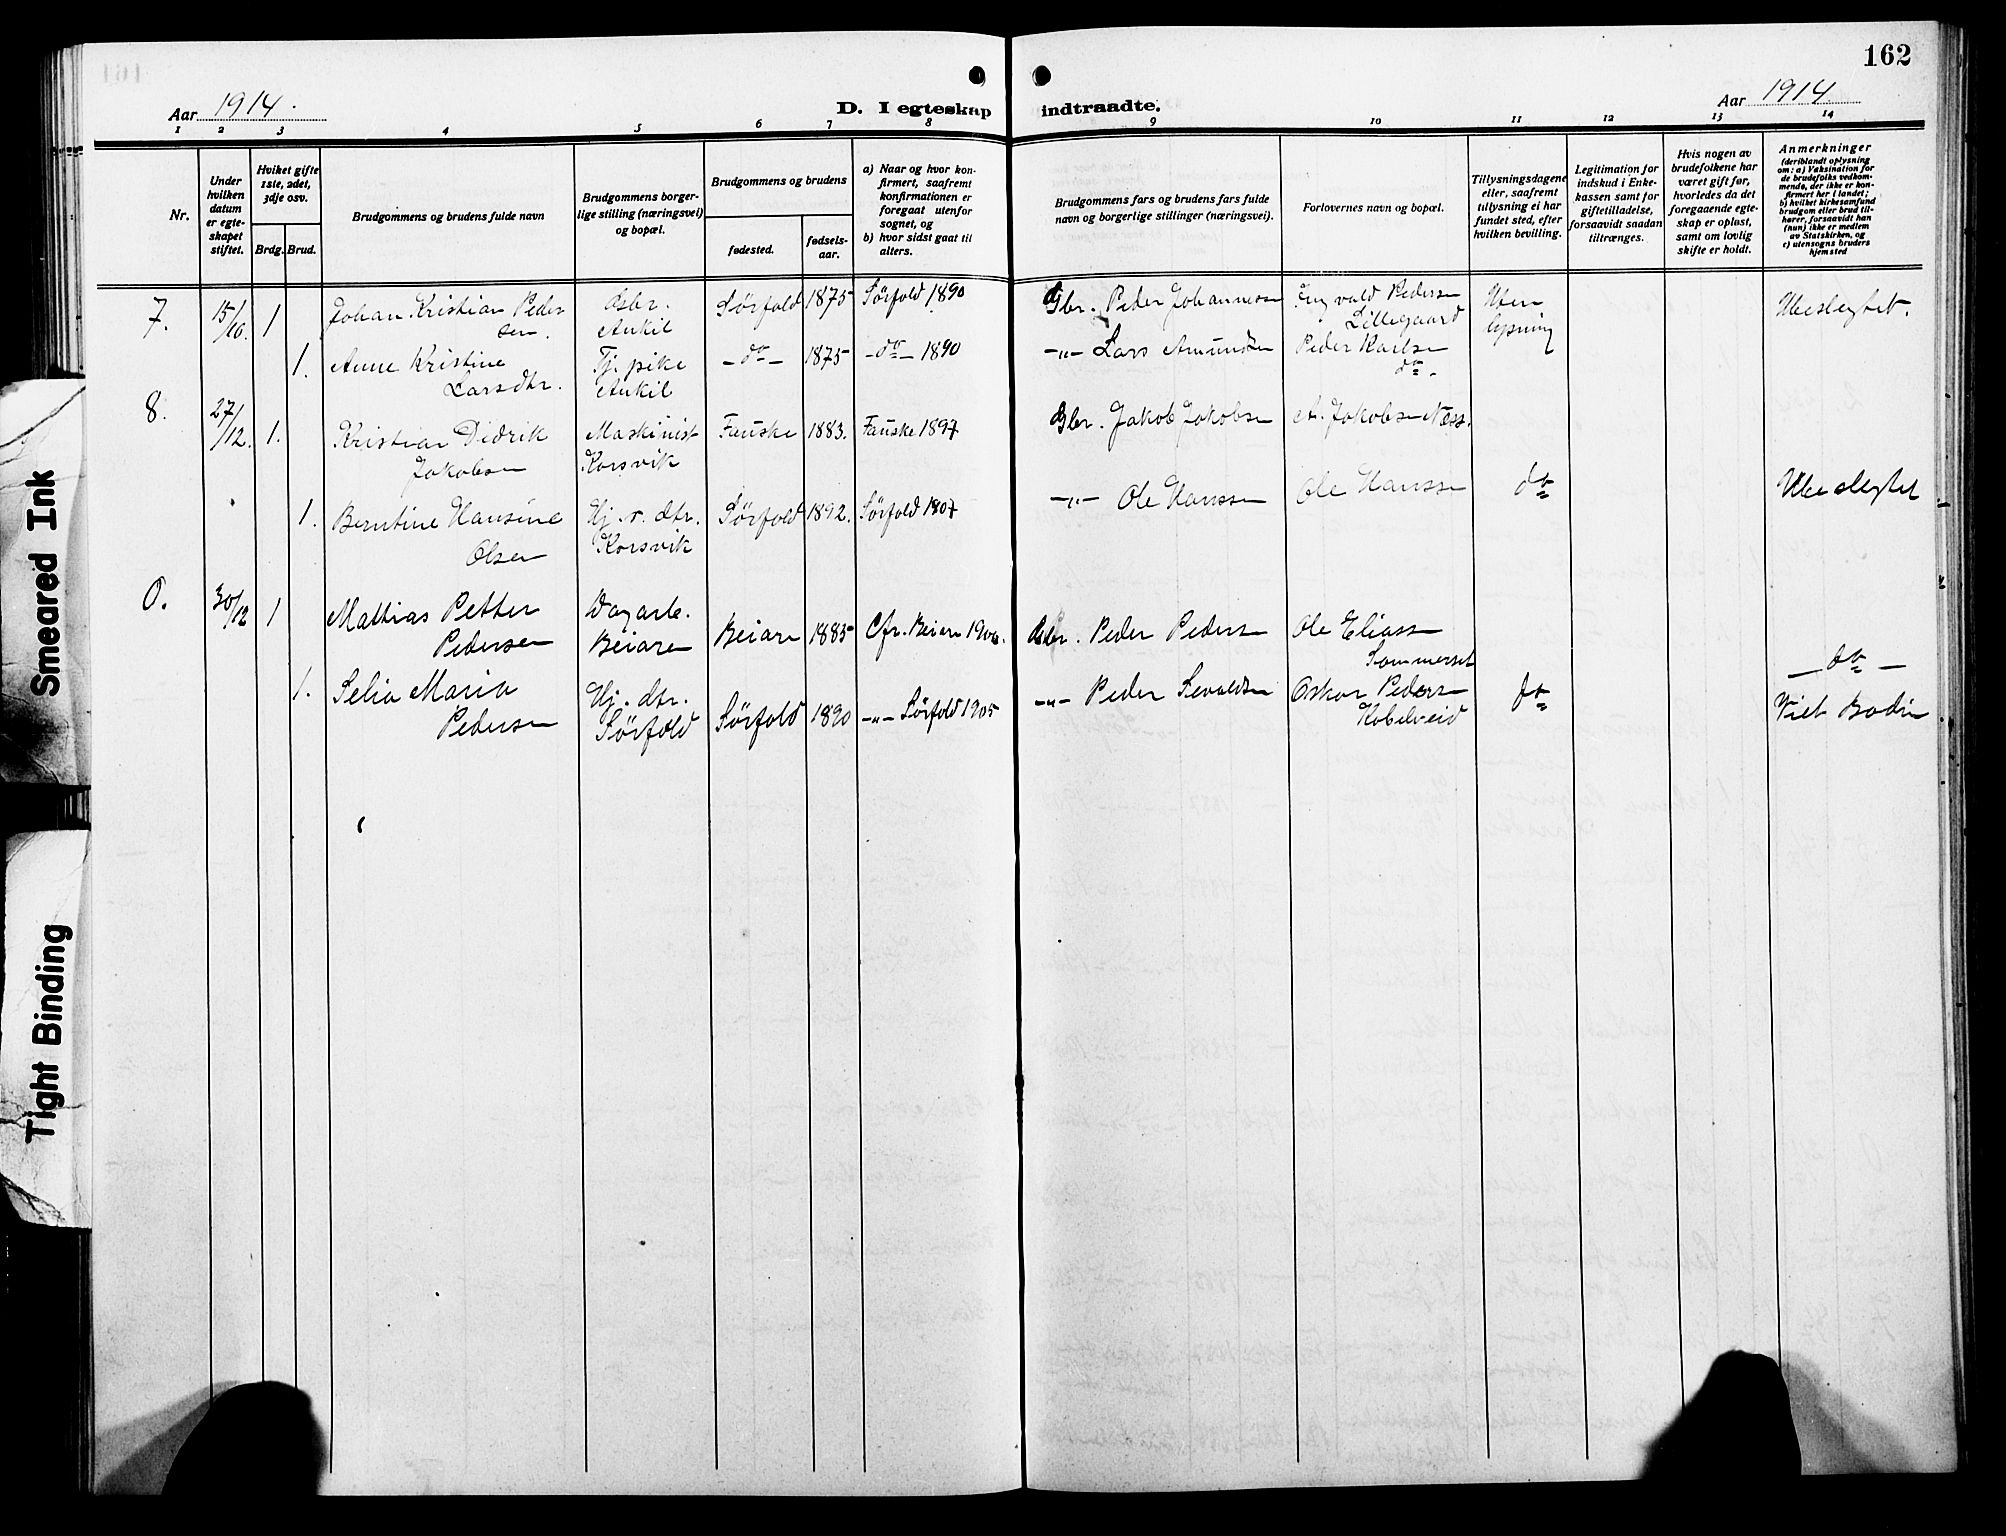 162
Aar 1914.
D. I egteskap indtraadte.
Aar 1914.
1 2 3 4 5 6 7 8 9 10 11 12 13 14
Nr.
Under hvilken datum er egteskapet stiftet.
Hviket gifte 1ste, 2det, 3dje osv.
Brdg. Brud.
Brudgommens og brudens fulde navn
Brudgommens borgerlige stilling (næringsvei) og bopæl.
Brudgommens og brudens
fødested.
fødselsaar.
a) Naar og hvor konfirmert, saafremt konfirmationen er foregaat utenfor sognet, og
b) hvor sidst gaat til alters.
Brudgommens fars og brudens fars fulde navn og borgerlige stillinger (næringsvei).
Forlovernes navn og bopæl.
Tillysningsdagene eller, saafremt tillysning ei har fundet sted, efter hvilken bevilling.
Legitimation for indskud i Enkekassen samt for giftetilladelse, forsaavidt saadan tiltrænges.
Hvis nogen av brudefolkene har været gift før, hvorledes da det foregaaende egteskap er opløst, samt om lovlig skifte er holdt.
Anmerkninger (deriblandt oplysning om: a) Vaksination for de brudefolks vedkommende, der ikke er konfirmert her i landet; b) hvilket kirkesamfund brudgom eller brud tilhører, forsaavidt han (hun) ikke er medlem av Statskirken, og c) utensogns bruders hjemsted
7. 15/10. 1 Johan Kristian Pedersen. Gsbr. Ankil Sørfold 1875 Sørfold 1890 Gbr. Peder Johannessen Ingvald Pedersen Lillegaard Uten lysning Ubeslegtet.
1. Anne Kristine Larsdtr. Tj. pike Ankil -do- 1875 -do- 1890 -"- Lars Amundsen Peder Karlsen do.
8. 27/12. 1. Kristian Didrik Jakobsen Maskinist Korsvik Fauske 1883. Fauske 1897 Gbr. Jakob Jakobsen A. Jakobsen Næss.
1. Berntine Hansine Olsen Hj. v. dtr. Korsvik Sørfold 1892. Sørfold 1907 -"- Ole Hanssen Ole Hanssen do Ubeslegtet
30/12 1 Mathias Petter Pedersen Dagarb. Beiaren Beiarn 1885 Cfr. Beiarn 1900. Gbr. Peder Pedersen Ole Eliassen Sommerset
-do-
1. Selia Maria Pedersen Hj. dtr. Sørfold Sørfold 1890 -"- Sørfold 1905 -"- Peder Sevaldsen Oskar Pedersen Kobelveid do Viet Bodin
Smeared Ink
Tight Binding